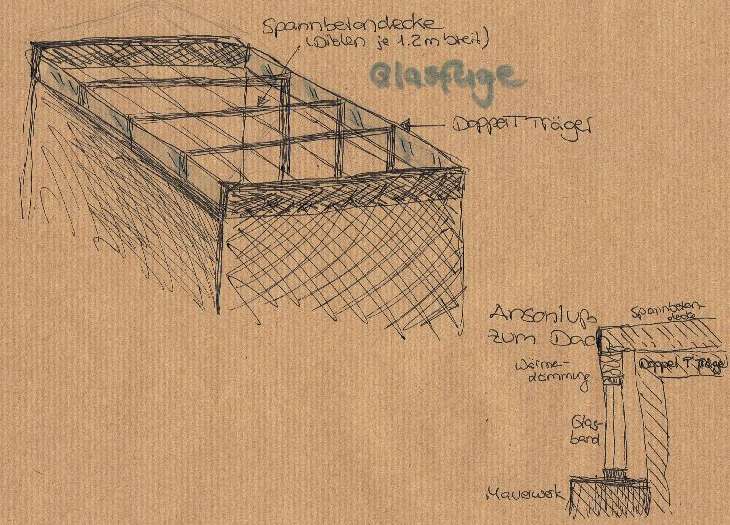 Spannbetondecke
(Dielen je 1.2m breit)
Glasfuge
Doppel T Träger
Anschluß
zum Dach
Spannbeton-
decke
Wärme-
dämmung
Doppel T Träger
Glas-
band
Mauerwerk